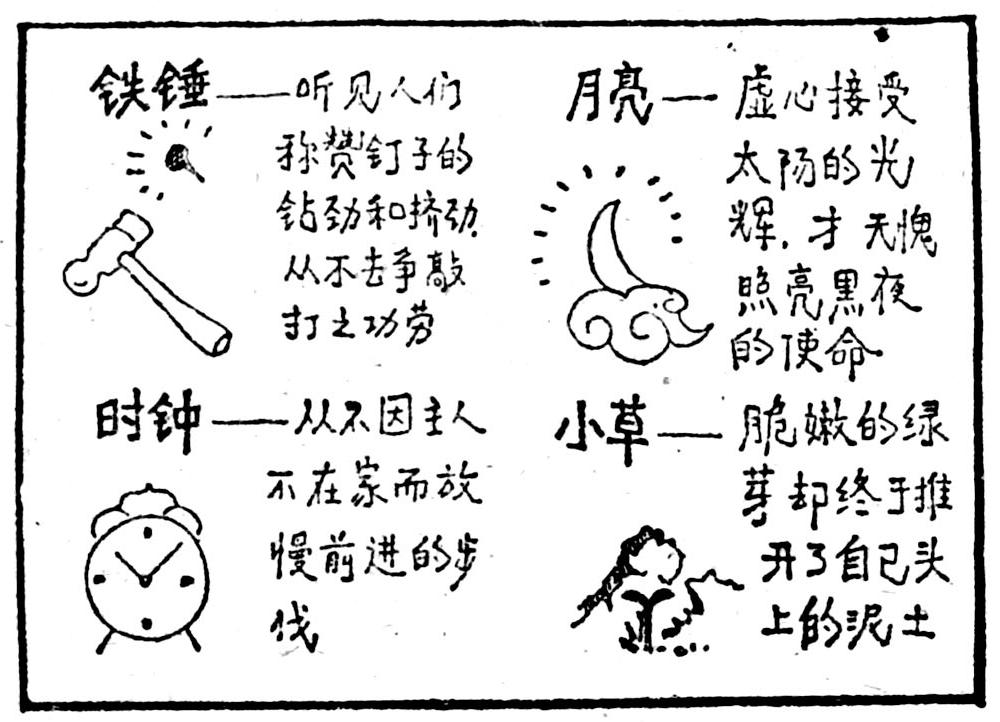 铁锤——听见人们
称赞钉子的
钻劲和挤劲，
从不去争敲
打之功劳
月亮——虚心接受
太阳的光
辉，才无愧
照亮黑夜
的使命
时钟——从不因主人
不在家而放
慢前进的步
伐
小草——脆嫩的绿
芽却终于推
开了自己头
上的泥土